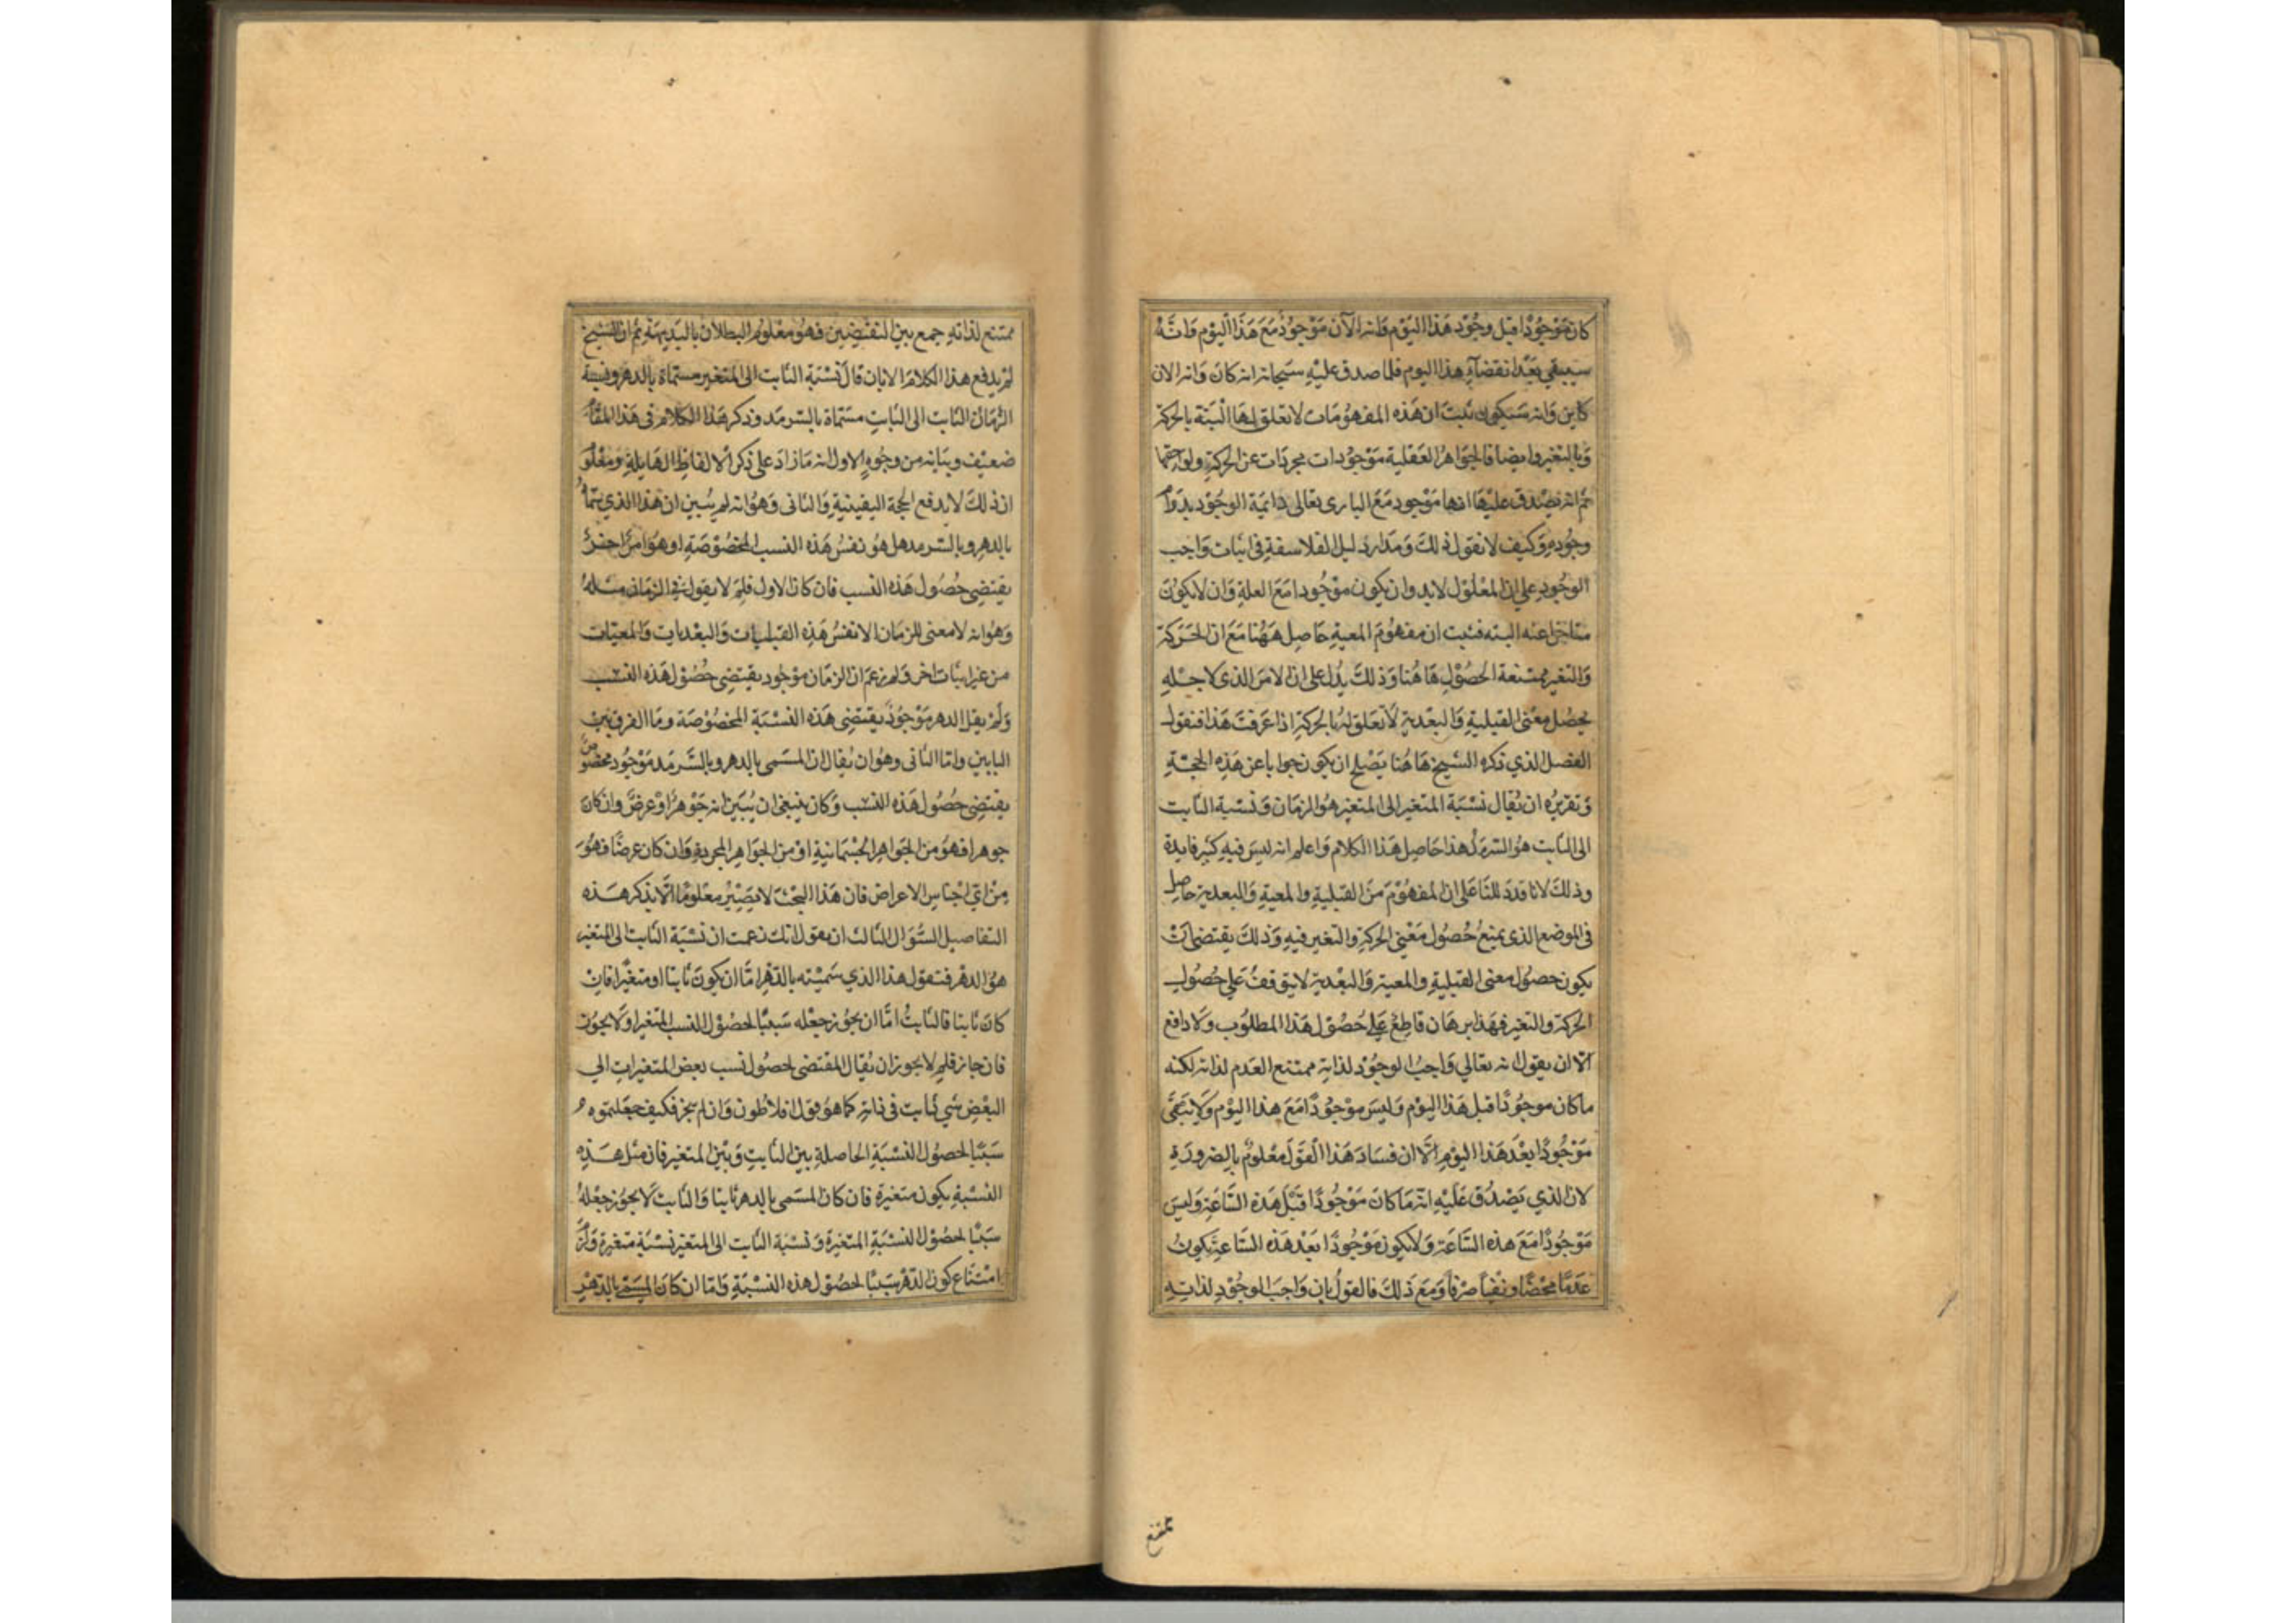 كان موجودا قبل وجود هذا اليوم وانه الآن موجود مع هذا اليوم وانه
سيبقي بعد انقضآء هذا اليوم فلما صدق عليه سبحانه انه كان وانه الان
كاين وانه سيكون ثبت ان هذه المفهومات لا تعلق لها البتة بالحركة
وبالتغير وايضا فالجواهر العقلية موجودات مجردات عن الحركة ولواحقها
ثم انه يصدق عليها انها موجود مع البارى تعالى دائمة الوجود بدوام
وجوده وكيف لا نقول ذلك ومدار دليل الفلاسفة فى اثبات واجب
الوجود على ان المعلول لابد وان يكون موجودا مع العلة وان لا يكون
متاخرا عنه البته فثبت ان مفهوم المعية حاصل ههنا مع ان الحركة
والتغير ممتنعة الحصول هاهنا وذلك يدل على ان الامر الذى لاجله
يحصل معنى القبلية والبعدية لا تعلق له بالحركة اذا عرفت هذا فنقول
الفصل الذي ذكره الشيخ هاهنا يصلح ان يكون جوابا عن هذه الحجة
وتقريره ان يقال نسبة المتغير الى المتغير هو الزمان ونسبة الثابت
الى الثابت هو السرمد هذا حاصل هذا الكلام واعلم انه ليس فيه كثير فايدة
وذلك لانا قد دللنا على ان المفهوم من القبلية والمعية والبعدية حاصل
فى الموضع الذى يمتنع حصول معني الحركة والتغير فيه وذلك يقتضى ان
يكون حصول معنى القبلية والمعية والبعدية لا يتوقف علي حصول
الحركة والتغير فهذا برهان قاطع علي حصول هذا المطلوب ولا دافع
الا ان يقول انه تعالي واجب الوجود لذاته ممتنع العدم لذاته لكنه
ما كان موجودا قبل هذا اليوم وليس موجودا مع هذا اليوم ولا يبقى
موجودا بعد هذا اليوم الا ان فساد هذا القول معلوم بالضرورة
لان الذي يصدق عليه انه ما كان موجودا قبل هذه الساعة وليس
موجودا مع هذه الساعة ولا يكون موجودا بعد هذه الساعة يكون
عدما محضا ونفيا صرفا ومع ذلك فالقول بان واجب الوجود لذاته
ممتنع
ممتنع لذاته جمع بين النقيضين فهو معلوم البطلان بالبديهة ثم ان الشيخ
لم يدفع هذا الكلام الا بان قال نسبة الثابت الى المتغير مسماة بالدهر ونسبة
الزمان الثابت الى الثابت مسماة بالسرمد وذكر هذا الكلام فى هذا المقام
ضعيف وبيانه من وجوه الاول انه ما زاد على ذكر الالفاظ الهايلة ومعلوم
ان ذلك لا يدفع الحجة اليقينية والثانى وهو انه لم يبين ان هذا الذي سماه
بالدهر وبالسرمد هل هو نفس هذه النسب المخصوصة او هو امر اخر
يقتضى حصول هذه النسب فان كان الاول فلم لا يقول فى الزمان مثله
وهو انه لا معنى للزمان الا نفس هذه القبليات والبعديات والمعيات
من غير اثبات اخر ولم زعم ان الزمان موجود يقتضى حصول هذه النسب
ولم يقل الدهر موجود يقتضى هذه النسبة المخصوصة وما الفرق بين
البابين واما الثانى وهو ان يقال ان المسمى بالدهر وبالسرمد موجود مخصوص
يقتضى حصول هذه النسب وكان ينبغي ان يبين انه جوهر او عرض وان كان
جوهرا فهو من الجواهر الجسمانية او من الجواهر المجردة وان كان عرضا فهو
من اي اجناس الاعراض فان هذا البحث لا يصير معلوما الا بذكر هذه
التفاصيل السؤال الثالث ان يقول انك زعمت ان نسبة الثابت الى المتغير
هو الدهر فنقول هذا الذي سميته بالدهر اما ان يكون ثابتا او متغيرا فان
كان ثابتا فالثابت اما ان يجوز جعله سببا لحصول النسب المتغير او لا يجوز
فان جاز فلم لا يجوز ان يقال المقتضى لحصول نسب بعض المتغيرات الي
البعض شي ثابت في ذاته كما هو قول افلاطون وان لم يجز فكيف جعلتموه
سببا لحصول النسبة الحاصلة بين الثابت وبين المتغير فان مثل هذه
النسبة يكون متغيرة فان كان المسمى بالدهر ثابتا والثابت لا يجوز جعله
سببا لحصول النسبة المتغيرة ونسبة الثابت الى المتغير نسبة متغيرة ولزم
امتناع كون الدهر سببا لحصول هذه النسبة واما ان كان المسمى بالدهر